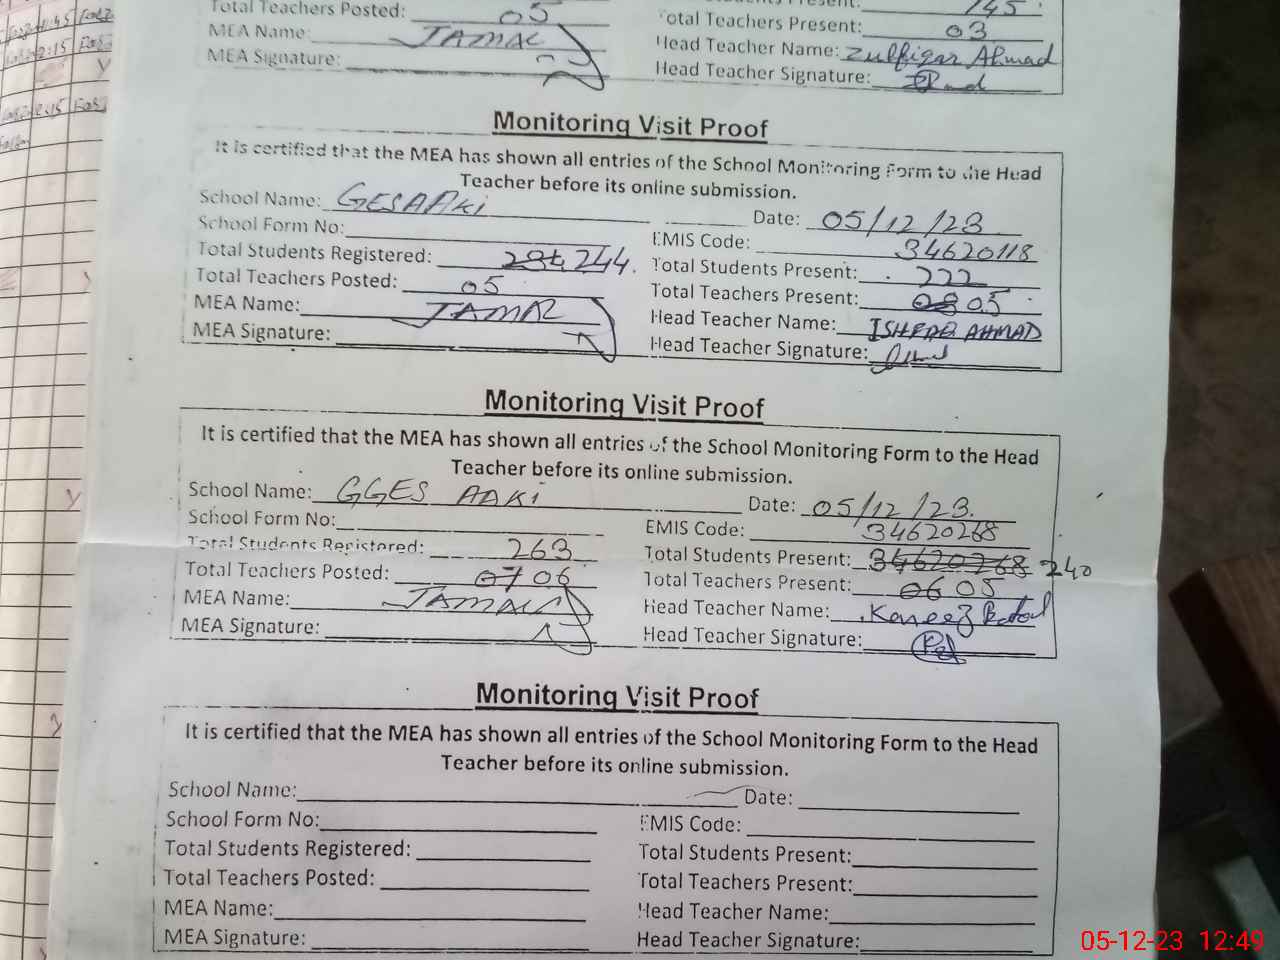 Total Teachers Posted: 05
145
MEA Name: JAMAL
Total Teachers Present: 03
MEA Signature:
Head Teacher Name: Zulfiqar Ahmad
Head Teacher Signature:
Monitoring Visit Proof
It is certified that the MEA has shown all entries of the School Monitoring Form to the Head
Teacher before its online submission.
School Name: GES AAKi
Date: 05/12/23
School Form No:
EMIS Code: 34620118
Total Students Registered: 234 244.
Total Students Present: 222
Total Teachers Posted: 05
Total Teachers Present: 08 05
MEA Name: JAMAL
Head Teacher Name: AHMAD
MEA Signature:
Head Teacher Signature:
Monitoring Visit Proof
It is certified that the MEA has shown all entries of the School Monitoring Form to the Head
Teacher before its online submission.
School Name: GGES AAKi
Date: 05/12/23.
School Form No:
EMIS Code: 34620268
Total Students Registered: 263
Total Students Present: 34620268 240
Total Teachers Posted: 07 06
Total Teachers Present: 06 05
MEA Name: JAMAL
Head Teacher Name: Kaneez
MEA Signature:
Head Teacher Signature:
Monitoring Visit Proof
It is certified that the MEA has shown all entries of the School Monitoring Form to the Head
Teacher before its online submission.
School Name:
Date:
School Form No:
EMIS Code:
Total Students Registered:
Total Students Present:
Total Teachers Posted:
Total Teachers Present:
MEA Name:
Head Teacher Name:
MEA Signature:
Head Teacher Signature:
05-12-23 12:49